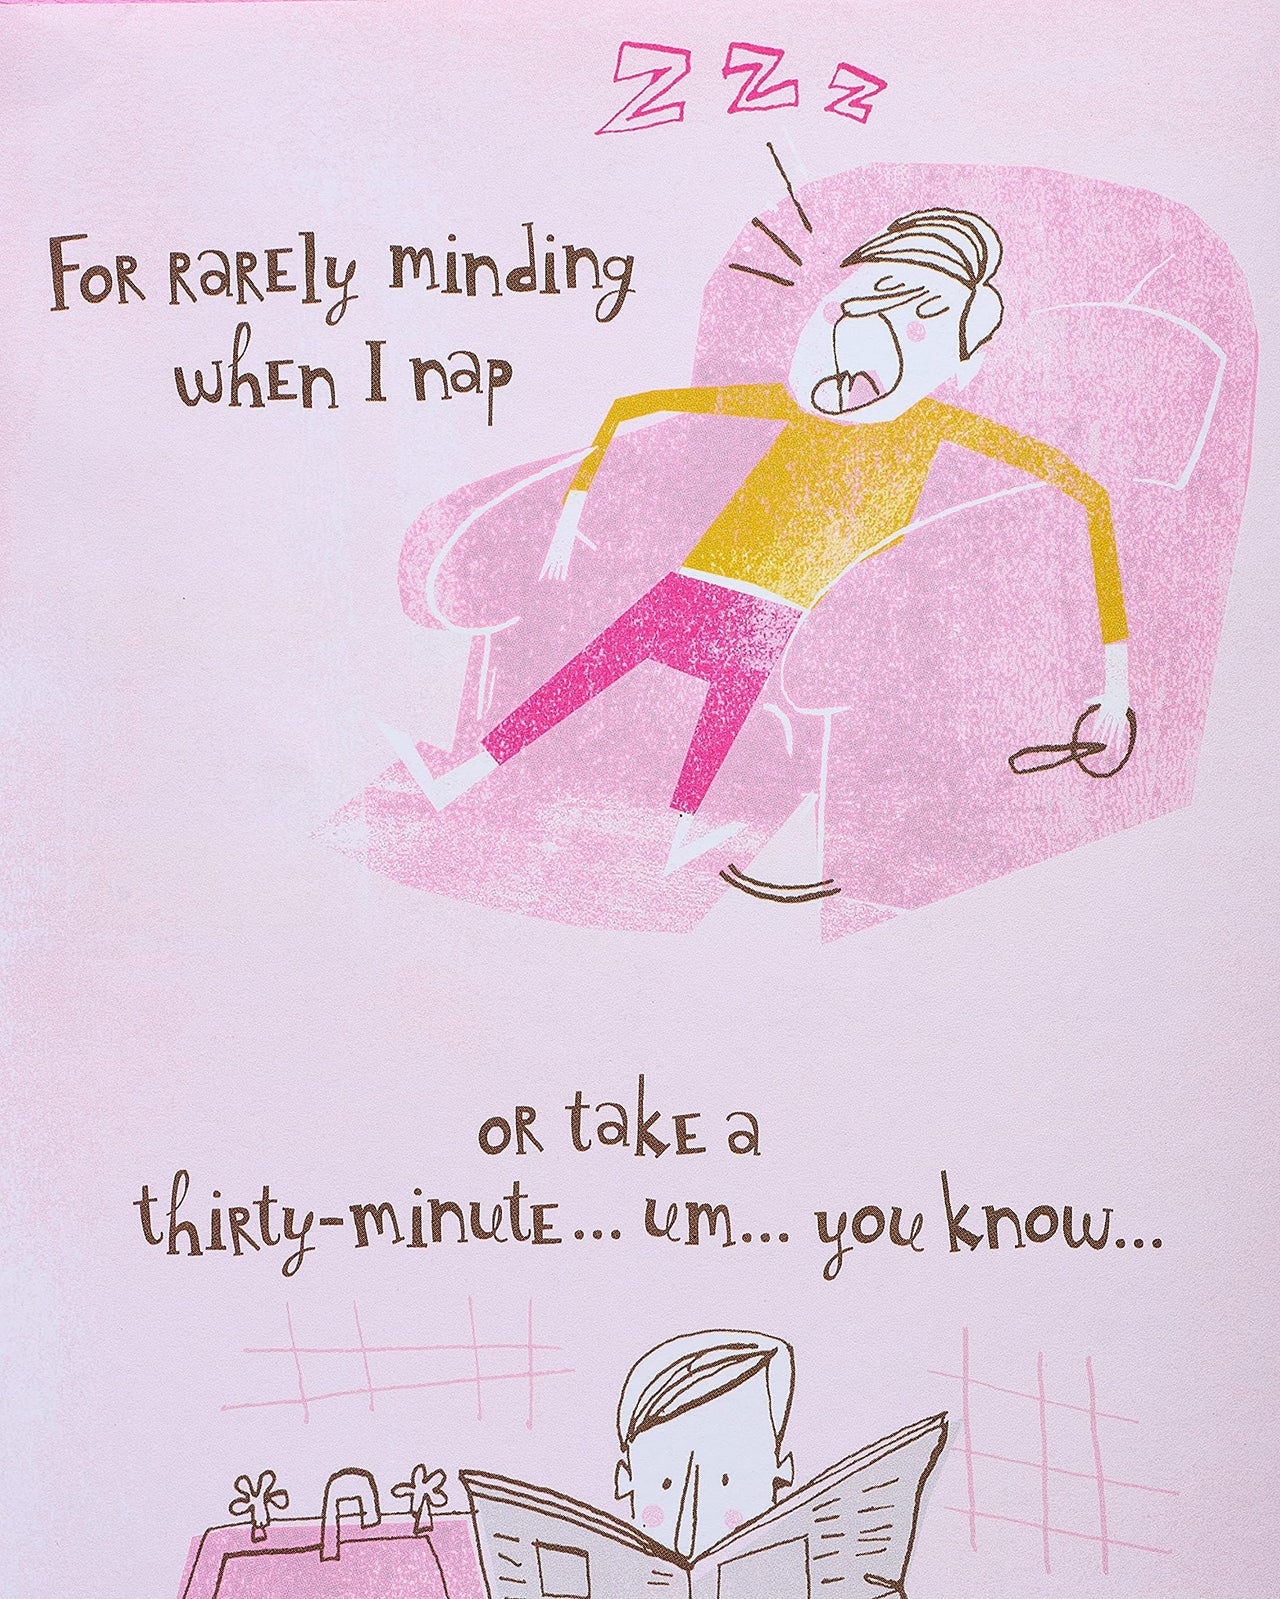 Z Z Z
For rarely minding
when I nap
or take a
thirty-minute... um... you know...